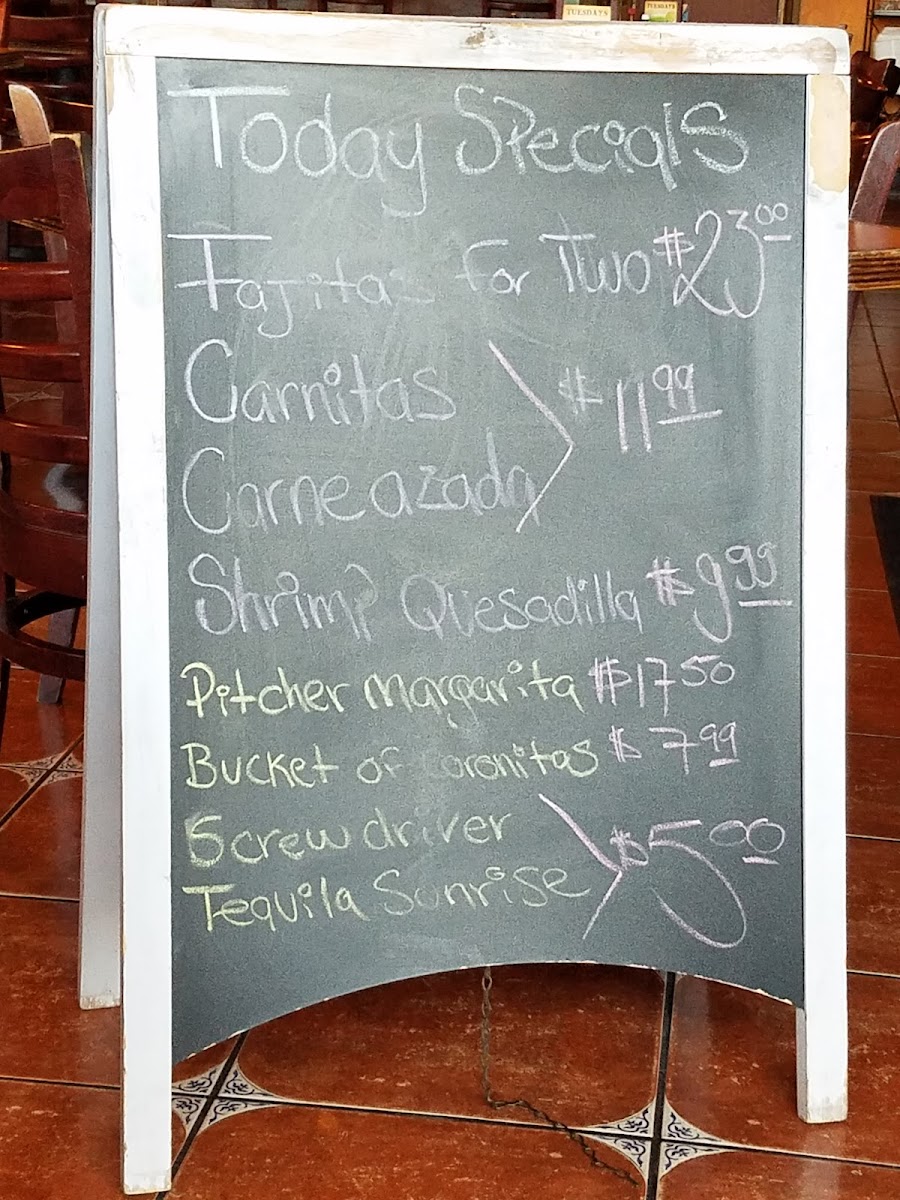 TUESDAYS TUESDAYS
Today Specials
Fajitas For Two $23.00
Carnitas
$11.99
Carne azada
Shrimp Quesadilla $9.99
Pitcher margarita $17.50
Bucket of coronitas $7.99
Screwdriver
$5.00
Tequila Sunrise